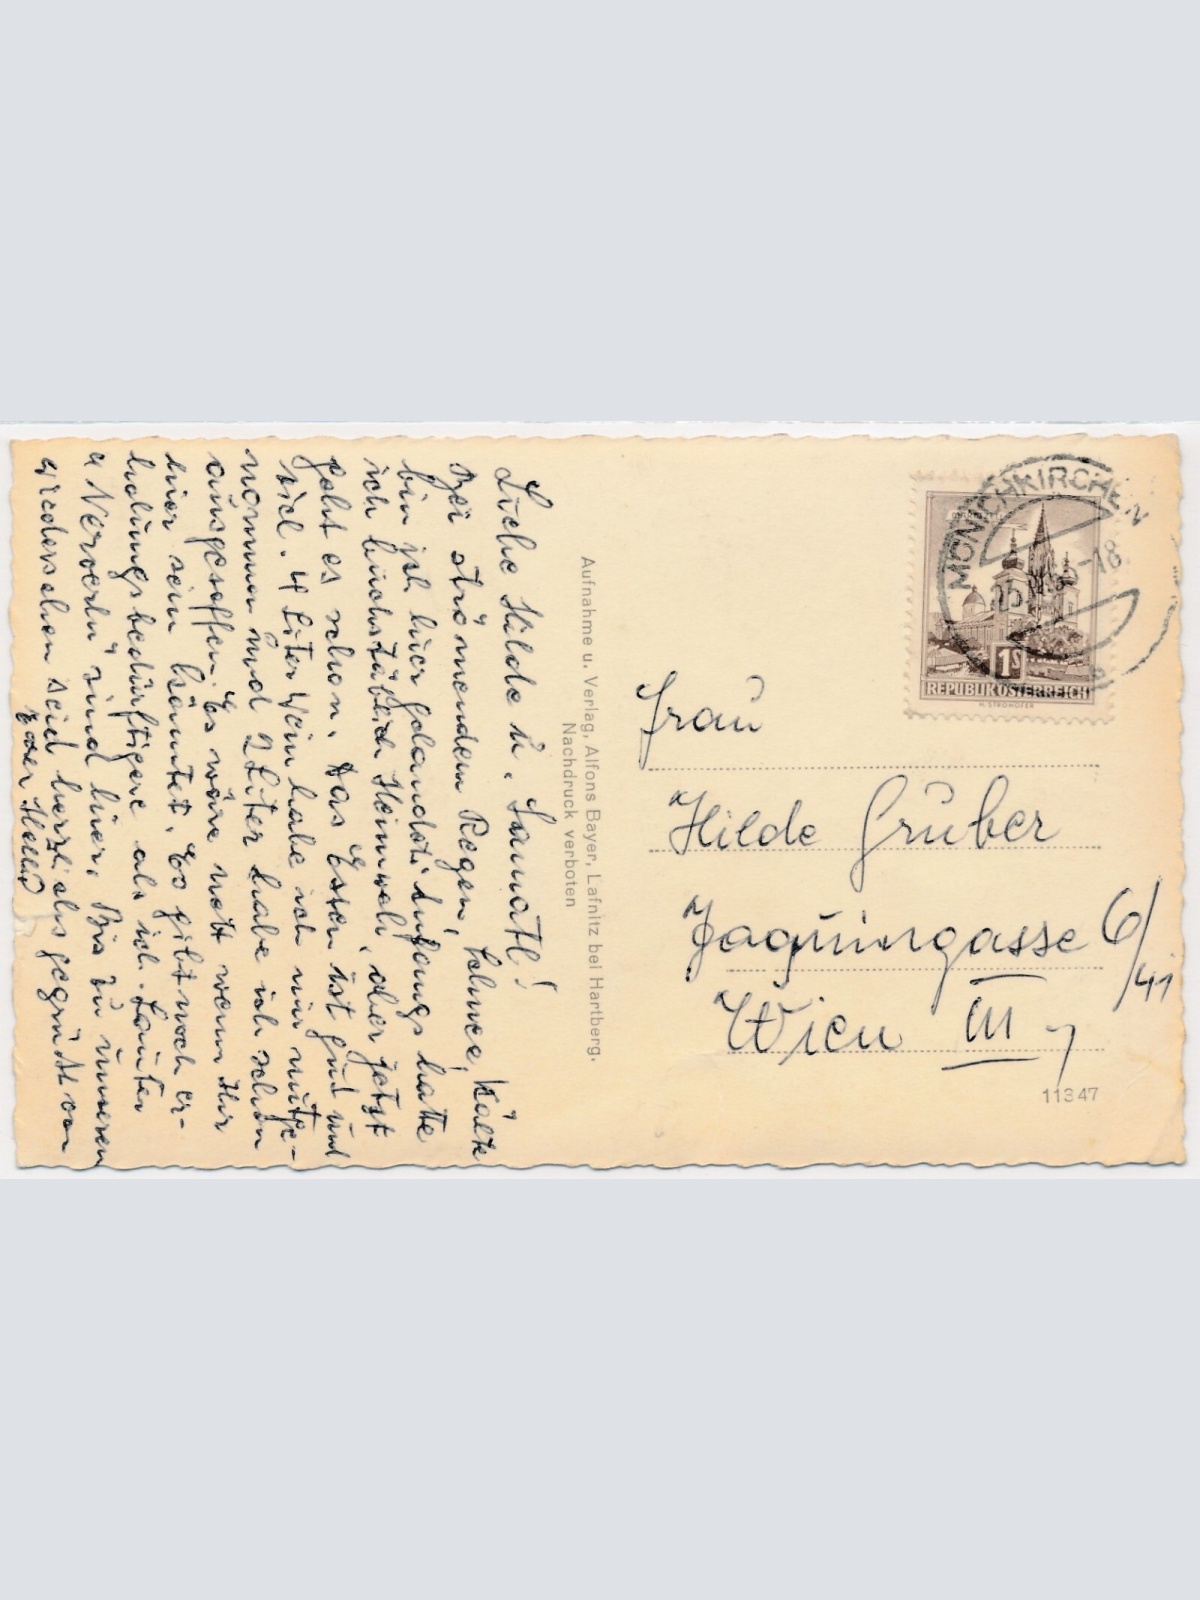 Liebe Hilde u. !
Bei strömendem Regen, Schnee, Kälte
bin ich hier gelandet. Anfangs hatte
ich buchstäblich Heimweh, aber jetzt
geht es schon. Das Essen ist gut und
viel. 4 Liter Wein habe ich mir mitge-
nommen und 2 Liter habe ich schon
ausgesoffen. Es wäre nett wenn Ihr
hier sein könntet. Es gibt noch er-
holungsbedürftigere als ich. Lauter
Nerverln sind hier. Bis zu unserem
Wiedersehen seid herzlichs gegrüßt von
Eurer
Aufnahme u. Verlag, Alfons Bayer, Lafnitz bei Hartberg.
Nachdruck verboten
MÖNICHKIRCHEN
-18
1S
REPUBLIK ÖSTERREICH
H. STROHOFER
Frau
Hilde Gruber
Jaquingasse 6/41
Wien III
11347